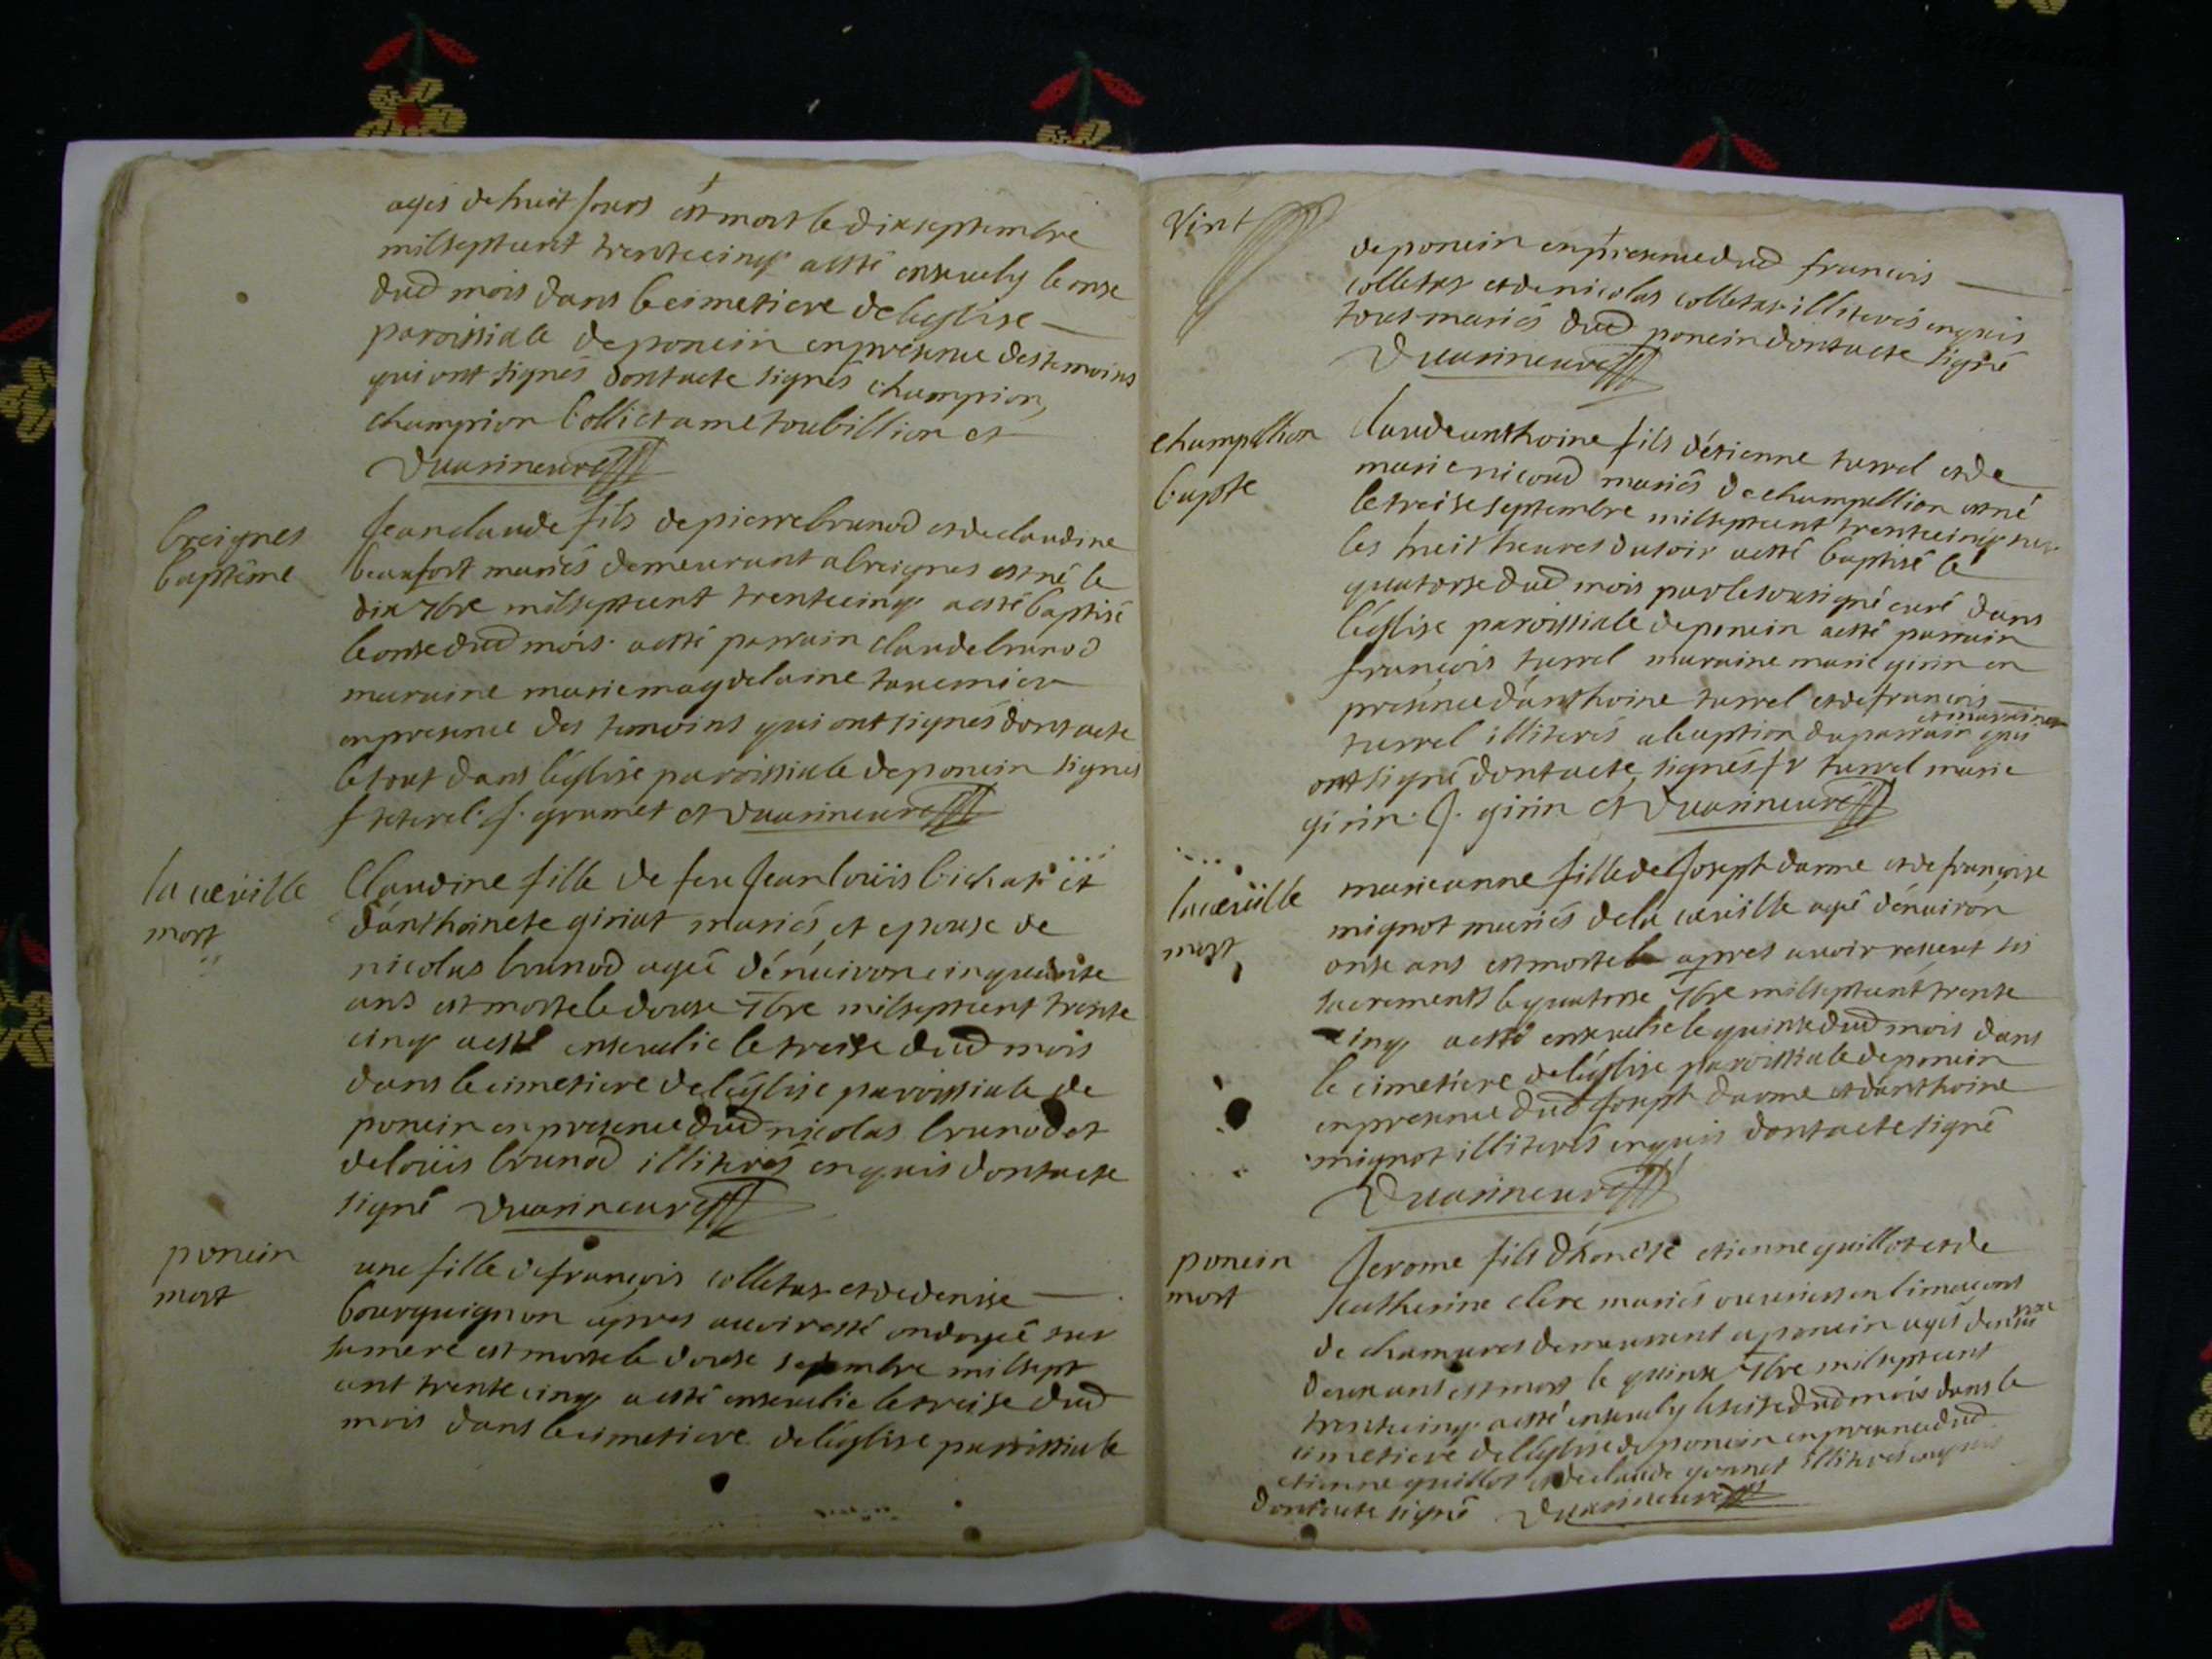 agés de huit jours est mort le dix septembre
mil sept cent trente cinq a esté ensevely le onse
dud mois dans le cimetiere de leglise
paroissiale de poncin en presence des temoins
qui ont signés dont acte signés champion,
champion Collict ame toubillion et
Duarineure
breignes
baptême
Jean claude fils de pierre brunod et de claudine
beaufort mariés demeurant a breignes est né le
dix 7bre mil sept cent trente cinq a esté baptisé
le onse dud mois a esté parrain claude brunod
maraine marie magdelaine tavernier
en presence des temoins qui ont signés dont acte
le tout dans l'églisé paroissiale de poncin signés
f. grumet et Duarineure
la cueuille
mort
Claudine fille de feu Jean loüis bichat et
d'anthoinete giriat mariés, et epouse de
nicolas brunod ageé d'enuiron cinquante
ans est morte le douse 7bre mil sept cent trente
cinq a esté enseuelie le treise dud mois
dans le cimetiere de l'églisé paroissiale de
poncin en presence dud nicolas brunod et
de loüis brunod illiterés enquis dont acte
signé Duarineure
poncin
mort
une fille de françois colletas et de denise
bourguignon apres auoir esté ondoyeé sur
sa mere est morte le douse septembre mil sept
cent trente cinq a esté enseuelie le treise dud
mois dans le cimetiere de l'églisé paroissiale
Vint
de poncin en presence dud francois
colletas et de nicolas colletas illiterés enquis
tous mariés dud poncin dont acte signé
Duarineure
champillion
bapte
Claude anthoine fils d'étienne turrel et de
marie nicoud mariés de champellion est né
le treise septembre mil sept cent trente cinq sur
les huit heures du soir a esté baptisé le
quatorse dud mois par le sousigné curé dans
l'églisé paroissiale de poncin a esté parrain
françois turrel maraine marie girin en
presence d'anthoine turrel et de francois
turrel illiterés a lexeption du parrain et maraine qui
ont signé dont acte signés fr turrel marie
girin. J. girin et Duarineure
la cueuille
mort
marie anne fille de Joseph darme et de françoise
mignot mariés de la cueuille ageé d'enuiron
onse ans est morte apres auoir receut ses
sacrements le quatorse 7bre mil sept cent trente
cinq a esté enseuelie le quinse dud mois dans
le cimetiere de l'églisé paroissiale de poncin
en presence dud Joseph darme et d'anthoine
mignot illiterés enquis dont acte signé
Duarineure
poncin
mort
Jerome fils d'honéte etienne guillot et de
catherine clerc mariés
de chamures demeurant a poncin agés
deux ans est mort le quinse 7bre mil sept cent
trente cinq a esté enseuely le seise dud mois dans le
cimetiere de l'églisé de poncin en presence dud
etienne guillot et de claude gonnet illiterés enquis
dont acte signé Duarineure